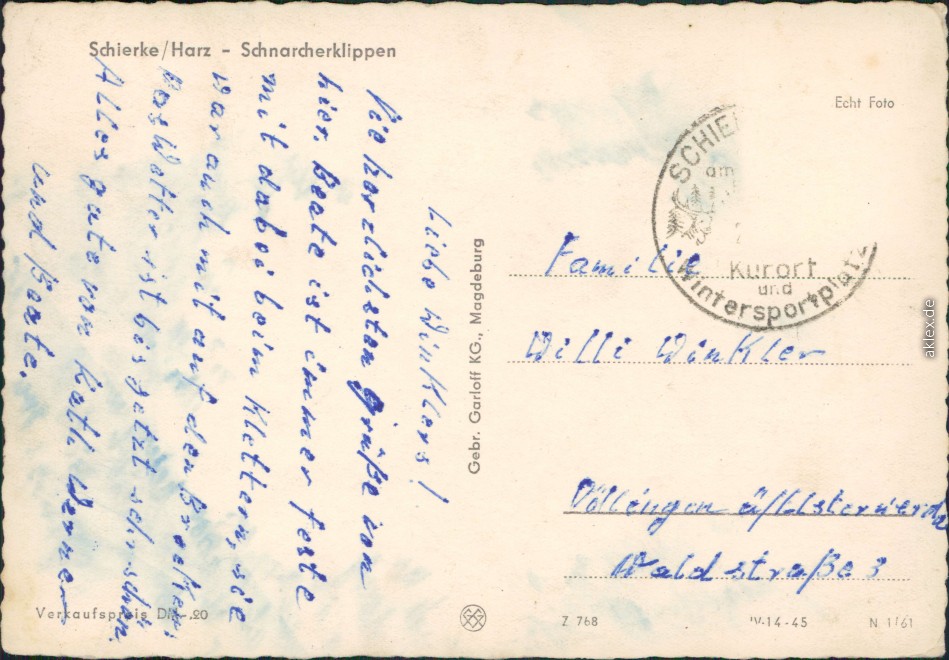 Schierke/Harz - Schnarcherklippen
Echt Foto
Liebe Winklers!
Die herzlichsten Grüße von
hier. Beate ist immer feste
mit dabei beim Klettern, sie
war auch mit auf den Brocken.
Das Wetter ist bis jetzt sehr schön.
Alles gute von Kath. Werner
und Beate.
Gebr. Garloff KG., Magdeburg
SCHIE
am
Kurort
und
Wintersportplatz
Familie
Willi Winkler
ü/Elsterwerda
Waldstraße 3
Verkaufspreis DM -.20
Z 768
IV-14-45
N 1/61
aklex.de